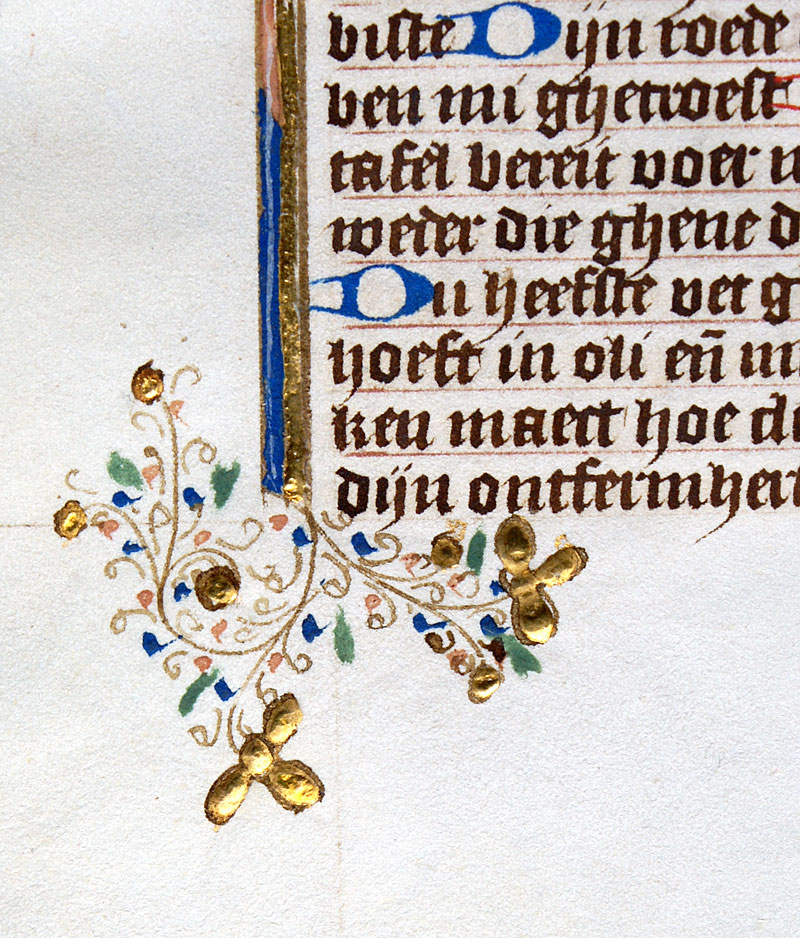 biste Dijn roede
ben mi ghetroest
tafel bereit voer
weder die ghene d
Du heefste vet g
hoeft in oli en̄
ken maect hoe d
dijn ontfermher